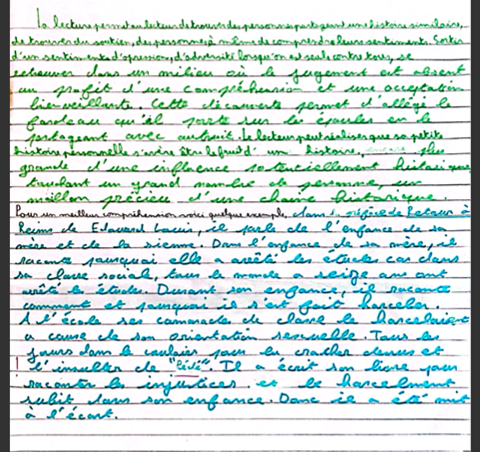 la lecture permet au lecteur de trouver des personnes partageant une histoire similaire,
de trouver du soutien, des personnes à même de comprendre leurs sentiments. Sortir
d'un sentiment d'opression, d'adversité lorsqu'on est seule contre tous, se
retrouver dans un milieu où le jugement est absent
au profit d'une compréhension et une acceptation
bienveillante. Cette découverte permet d'allégé le
fardeau qu'il porte sur les épaules en le
partageant avec autrui. Le lecteur peut réaliser que sa petite
histoire personnelle s'avère être le fruit d'un histoire, plus
grande d'une influence potentiellement historique
touchant un grand nombre de personne, un
maillon précieu d'une chaine historique.
Pour un meilleur compréhension voici quelque exemple, dans la préface de Retour à
Reims de Edouard Louis, il parle de l'enfance de sa
mère et de la sienne. Dans l'enfance de sa mère, il
raconte pourquoi elle a arrêté les études car dans
sa classe social, tous le monde a seize ans ont
arrêté les études. Durant son enfance, il raconte
comment et pourquoi il s'est fait harceler.
A l'école ses camarades de classe le harcelaient
a cause de son orientation sexuelle. Tous les
jours dans le couloir pour lui cracher dessus et
l'insulter de " ". Il a écrit son livre pour
raconter les injustices et le harcelment
subit dans son enfance. Donc il a été mit
à l'écart.